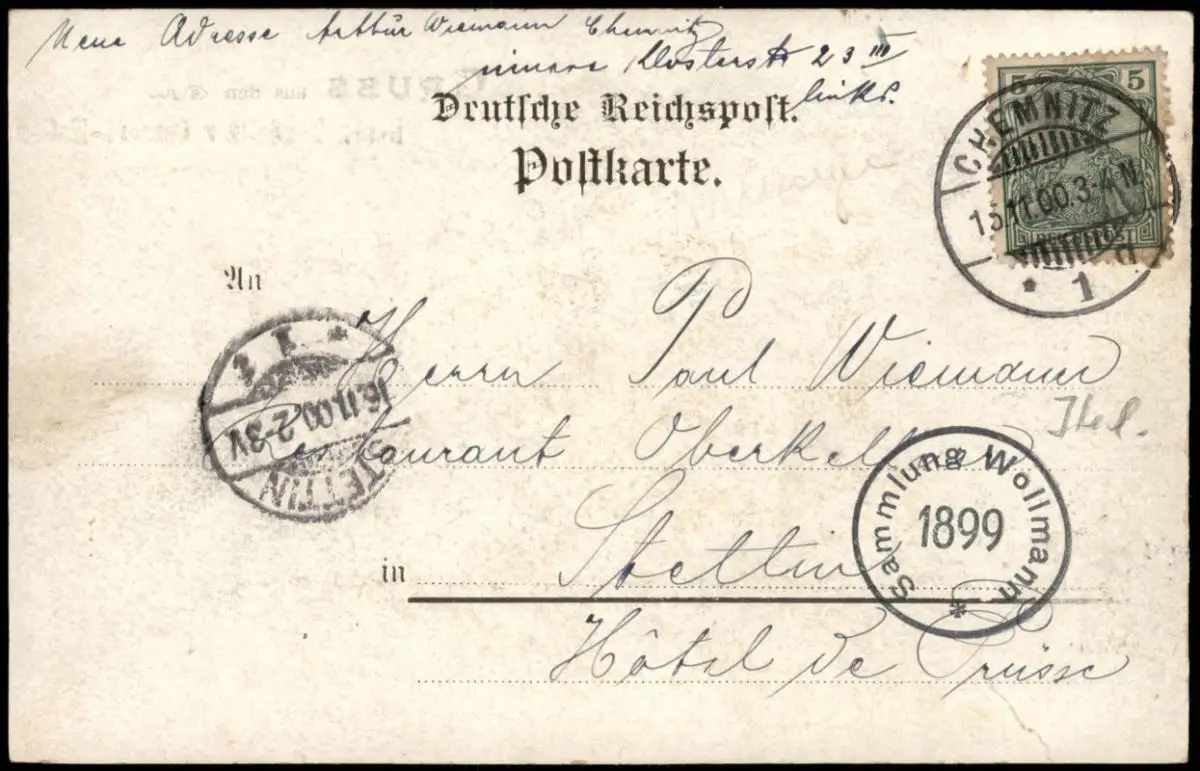 Neue Adresse Arthur Wiemann Chemnitz
innere Klosterstr 23 III
links.
Deutsche Reichspost.
Postkarte.
5 5
CHEMNITZ
11.00.3-4 N.
* 1
An
Herrn Paul Wiemann
STETTIN
16.11.00.2-3V
* 1
Restaurant Oberkellner
Sammlung Wollmann
1899
*
in Stettin
Hôtel de Prüsse